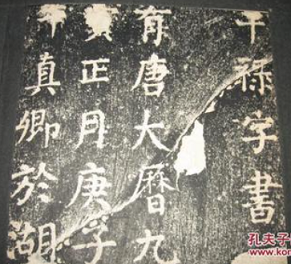 干禄字書
有唐大曆九
正月庚子
真卿於湖
孔夫子